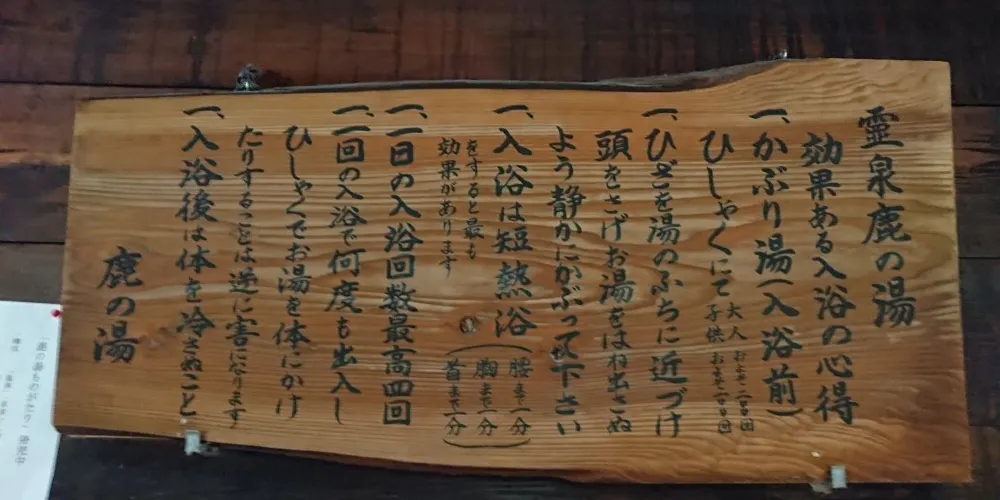 霊泉鹿の湯
効果ある入浴の心得
一、かぶり湯(入浴前)
ひしゃくにて
大人 およそ
子供 およそ
一、ひざを湯のふちに近づけ
頭をさげお湯をはね出さぬ
よう静かにかぶって下さい
一、入浴は短熱浴
(腰まで一分
胸まで一分
首まで一分)
をすると最も
効果があります
一、一日の入浴回数最高四回
一、一回の入浴で何度も出入し
ひしゃくでお湯を体にかけ
たりすることは逆に害になります
一、入浴後は体を冷さぬこと
鹿の湯
「鹿の湯ものがたり」発売中